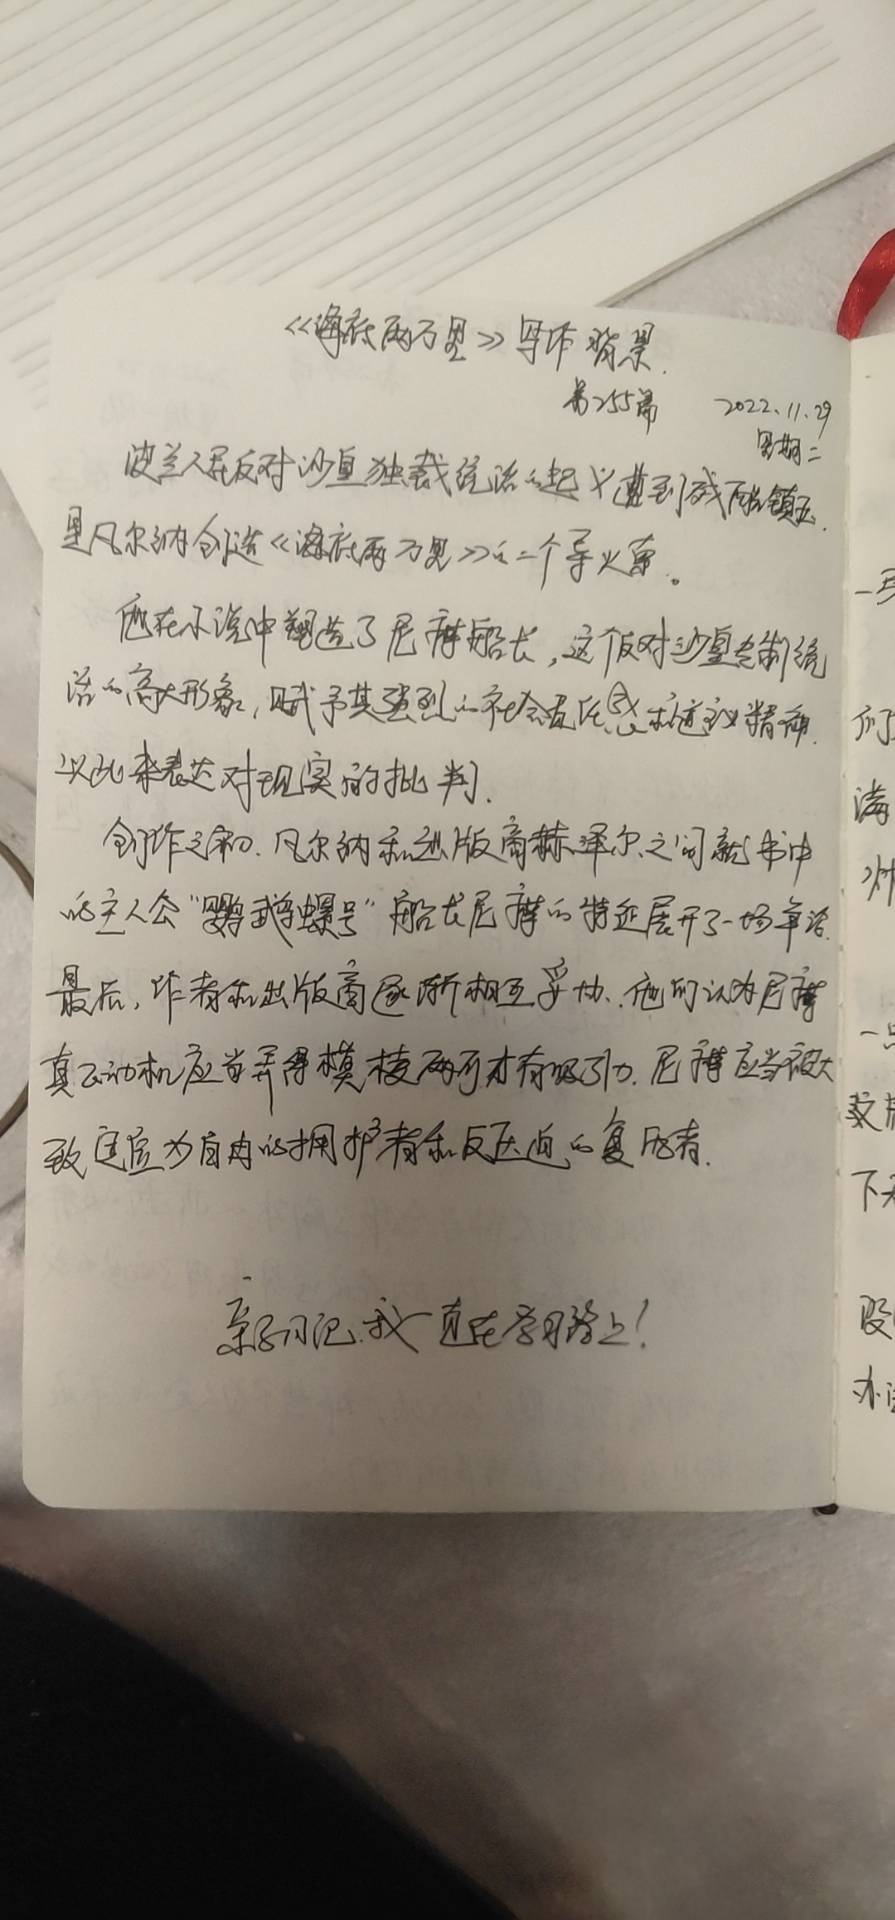 《海底两万里》写作背景.
第255篇 2022.11.29
星期二
波兰人民反对沙皇独裁统治的起义遭到残酷镇压.
是凡尔纳创造《海底两万里》的一个导火索。
他在小说中塑造了尼摩船长,这个反对沙皇专制统
治的高大形象,赋予其强烈的社会责任感和
精神.
以此来表达对现实的批判.
创作之初.凡尔纳和出版商赫泽尔之间就书中
的主人公“鹦鹉螺号”船长尼摩的特征展开了一场争论.
最后,作者和出版商逐渐相互妥协.他们认为尼摩
真正动机应当弄得模棱两可才有吸引力.尼摩应当被大
致定位为自由的拥护者和反压迫的复仇者.
亲子日记.我一直在学习路上!
一
们
满
一
教
下
股
办